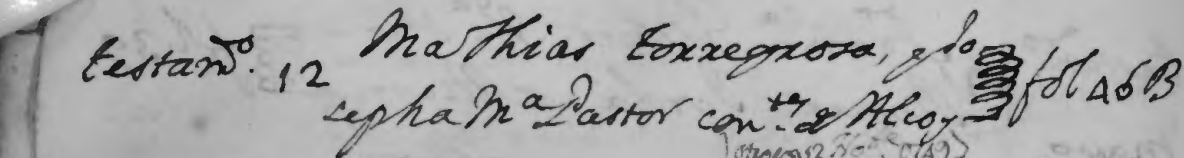 testam.to 12 Mathias Torregrosa, y Jo
sepha M.a Pastor con.tes de Alcoy fol 46 B